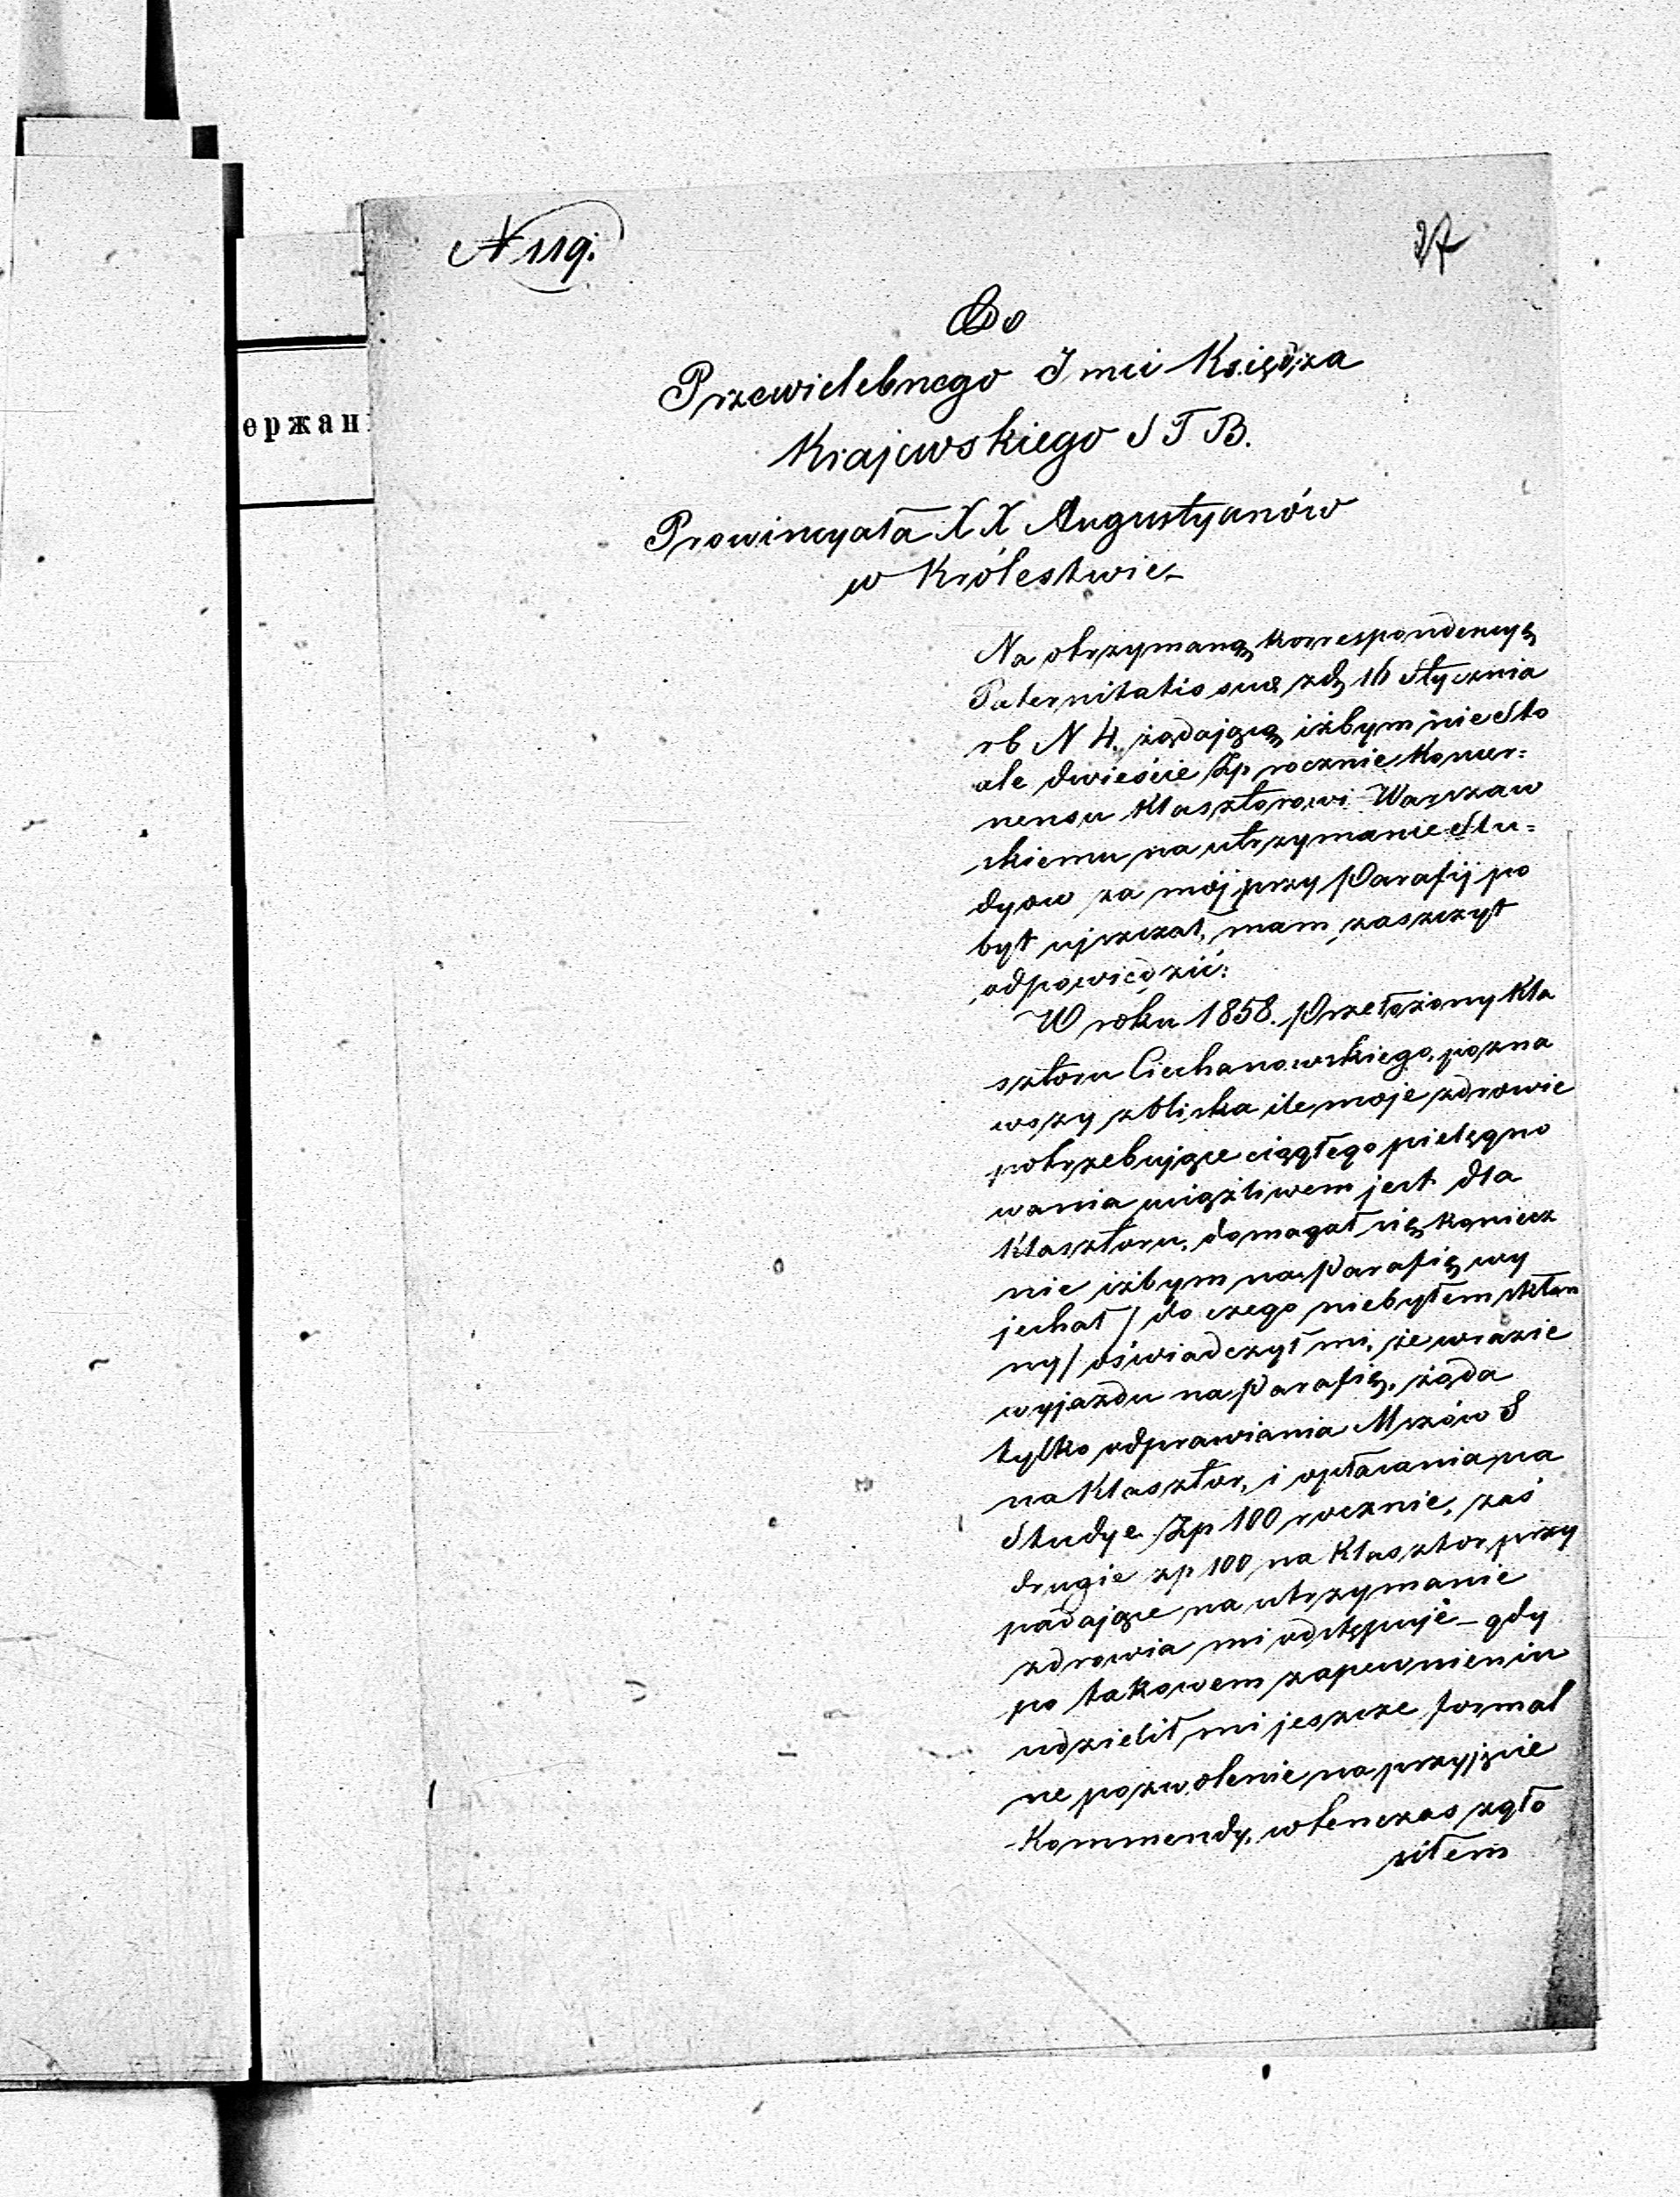 N 119.
27
ержан
Do
Przewielebnego Imci Księdza
Krajewskiego S T B.
Prowincyała XX Augustyanów
w Królestwie
Na otrzymaną korrespondencyą
Paternitatis suæ z d 16 Stycznia
rb N 4. żądającą iżbym nie Sto
ale dwieście Zp rocznie Konwe-
nensu Klasztorowi Warszaw
skiemu na utrzymanie Stu-
dyów za mój przy Parafij po
byt ujszczał, mam zaszczyt
odpowiedzić:
W roku 1858. Przełożony Kla
sztoru Ciechanowskiego, pozna
wszy zbliska ile moje zdrowie
potrzebujące ciągłego pielęgno
wania uciążliwem jest dla
Klasztoru, domagał się koniecz
nie iżbym na Parafię wy
jechał / do czego niebyłem skłon
ny / oświadczył mi, że w razie
wyjazdu na Parafię, żąda
tylko odprawiania Mszów S
na Klasztor, i opłacania na
Studye Zp 100 rocznie, zaś
drugie zp 100 na Klasztor przy
padające na utrzymanie
zdrowia mi odstępuje – gdy
po takowem zapewnieniu
udzielił mi jeszcze formal
ne pozwolenie na przyjęcie
Kommendy, wtenczas zgło
siłem